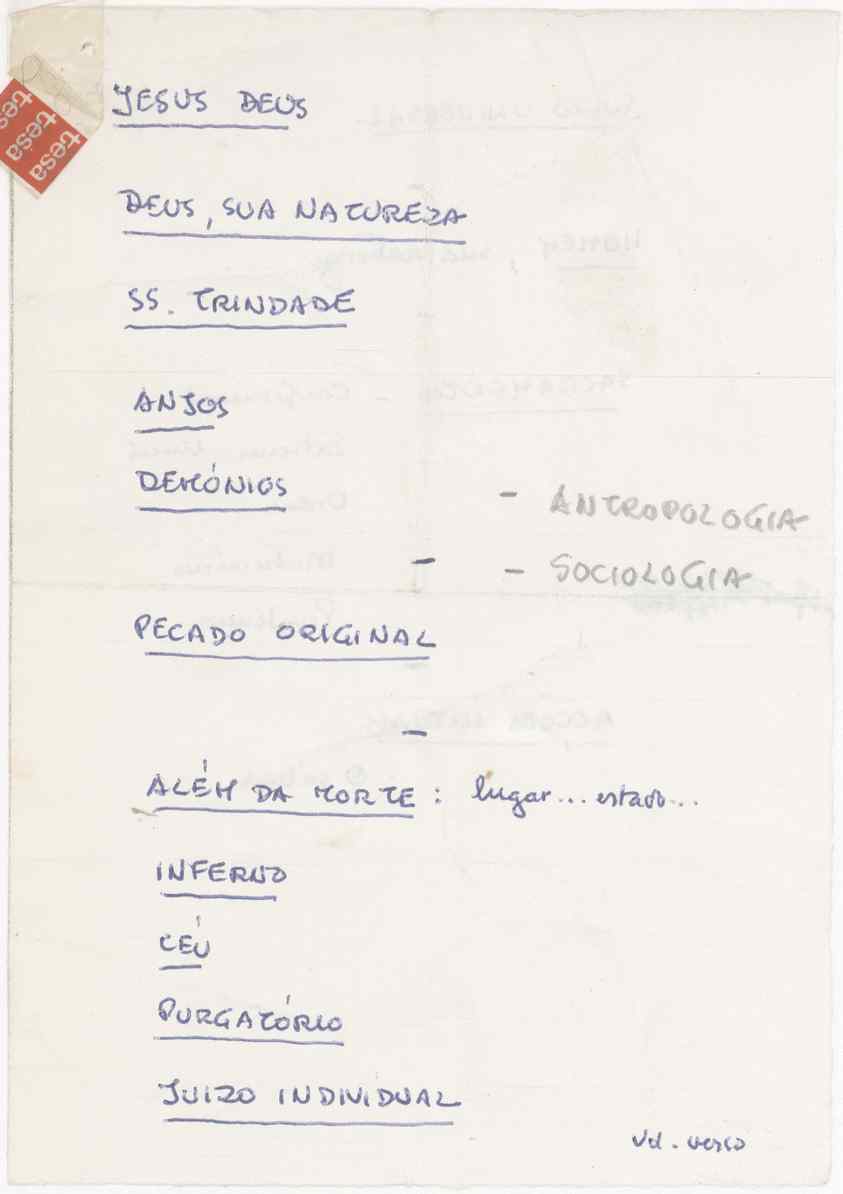 tesa
tesa
tesa
JESUS DEUS
DEUS, SUA NATUREZA
SS. TRINDADE
ANJOS
DEMÓNIOS
- ANTROPOLOGIA
-
- SOCIOLOGIA
PECADO ORIGINAL
-
ALÉM DA MORTE : lugar... estado...
INFERNO
CÉU
PURGATÓRIO
JUIZO INDIVIDUAL
Vd. verso